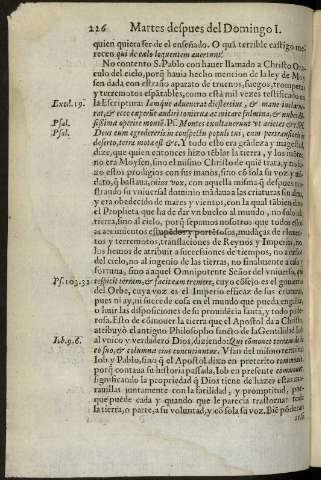 226 Martes despues del Domingo I.
quien quiera ser de el enseñado. O quā terrible castigo me-
recen qui de cœlo loquentem auertunt!
No contento S. Pablo con hauer llamado a Christo Ora-
culo del cielo, porq̃ hauia hecho mencion de la ley de Moy
sen dada con estraño aparato de truenos, fuegos, trompetas
y terremotos espātables, como està mil vezes testificado en
Exod. 19. la Escritura: Iamque aduenerat dies tertius, & mane inclarue-
rat, & ecce cœperūt audiri tonitrua ac micare fulmina, & nubes de
Psal. sissima operire montē. Montes exultauerunt vt arietes
Psal. Deus cum egredereris in conspectu populi tui, cum pertransires in
deserto, terra mota est &c. Y todo esto era grādeza y magestad,
dize, que quien entonces hizo tēblar la tierra, y los mōtes
no era Moysen, sino el mismo Christo de quiē trata, y no hi-
zo estos prodigios con sus manos, sino cō sola su voz y
q̃ bastaua, cuius vox, con aquella misma q̃ despues mo-
strando su vniuersal dominio mādaua las criaturas sin
y era obedecido de mares y vientos, con la qual tābien dize
el Propheta que ha de dar vn buelco al mundo, no solo al
tierra, sino al cielo, porq̃ sepamos nosotros que todos estos
acaecimientos estupēdos y portētosos, mudāças de
y terremotos, translaciones de Reynos y Imperios, no
los hemos de atribuir a successiones de tiempos, no a
del cielo, no al ingenio de las tierras, no finalmente a ca
fortuna, sino a aquel Omnipotente Señor del vniuerso, qui
Ps. 103. 32 respicit terram, & facit eam tremere, cuyo cōsejo es el gouierno
del Orbe, cuya voz es el Imperio eficaz de sus criaturas
pues ni ay, ni sucede cosa en el mundo que pueda engañar,
o huir las disposiciones de su prouidēcia santa, y todo pode-
rosa. Esto de cōmouer la tierra que el Apostol da a Christo
atribuyò el antiguo Philosopho sancto de la Gentilidad Iob
Iob. 9. 6. al vnico y verdadero Dios, diziendo: Qui cōmouet terram de lo
co suo, & columnæ eius concutiuntur. Vsan del mismo termino
Iob y Pablo, sino q̃ el Apostol dize en preterito commouit
porq̃ contaua su historia passada, Iob en presente commouet
significando la propriedad q̃ Dios tiene de hazer estas ma-
rauillas juntamente con la facilidad, y promptitud, por-
que puede cada y quando que le parecia trastornar toda
la tierra, o parte, a su voluntad, y cō sola su voz. Biē pōderan